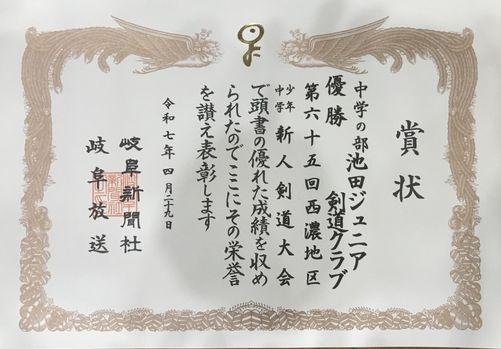 賞状
中学の部
優勝
池田ジュニア
剣道クラブ
第六十五回西濃地区
少年
中学
新人剣道大会
で頭書の優れた成績を収め
られたのでここにその栄誉
を讃え表彰します
令和七年四月二十九日
岐阜新聞社
岐阜放送